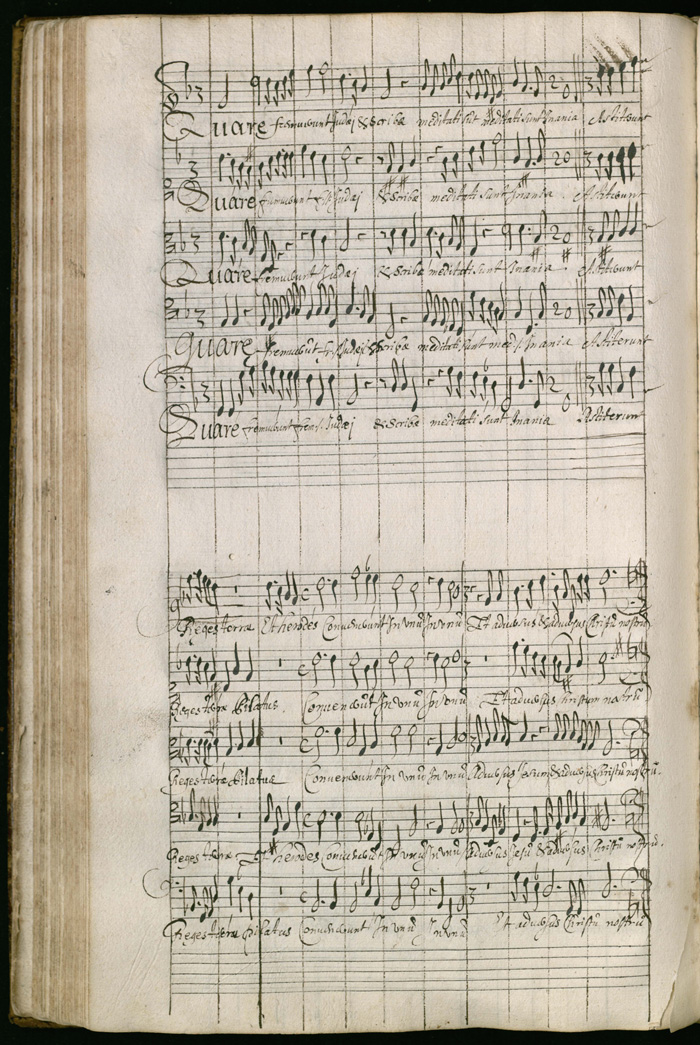 Quare fremuerunt Judaj & scribæ meditati sunt meditati sunt Inania Astiterunt
Quare fremuerunt Judaj & scribæ meditati sunt Inania Astiterunt
Quare fremuerunt Judaj & scribæ meditati sunt Inania Astiterunt
Quare fremuerūt Judaj & scribæ meditati sunt Inania Astiterunt
Quare fremuerunt Judaj & scribæ meditati sunt Inania Astiterunt
Reges terræ Et herodes Convenerunt In unū In unū Et adversus & adversus Christū nostrū
Reges terræ Pilatus Convenerūt In unū In unū Et adversus Christum nostrū
Reges terræ Pilatus Convenerunt In unū In unū Adversus Jesum & adversus Christū nostrū
Reges terræ Et herodes Convenerūt In unū In unū Adversus Jesū & adversus Christū nostrū
Reges terræ Pilatus Convenerunt In unū In unū Et adversus Christū nostrū